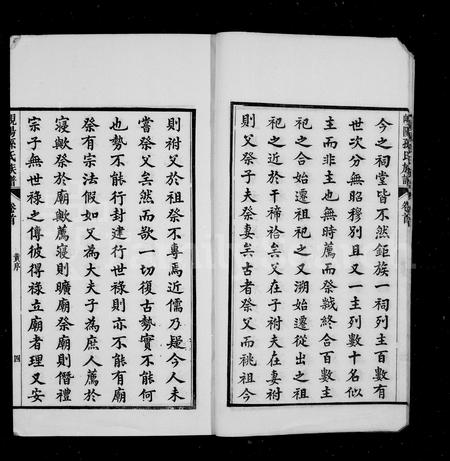 今之祠堂皆不然鉅族一祠列主百數有
世次分無昭穆別且又一主列數十名似
主而非主也無時薦而祭輒終合百數主
祀之合始遷祖祀之又溯始遷從出之祖
祀之近於干禘祫矣父在子祔夫在妻祔
則父祭子夫祭妻矣古者祭父而祧祖今
則祔父於祖祭不專焉近儒乃疑今人未
嘗祭父矣然而欲一切復古勢實不能何
也勢不能行封建行世祿則亦不能有廟
祭有宗法假如父為大夫子為庶人薦於
寢歟祭於廟歟薦寢則曠廟祭廟則僭禮
宗子無世祿之傳彼得祿立廟者理又安
峴陽孫氏族譜 卷首 黃序 四